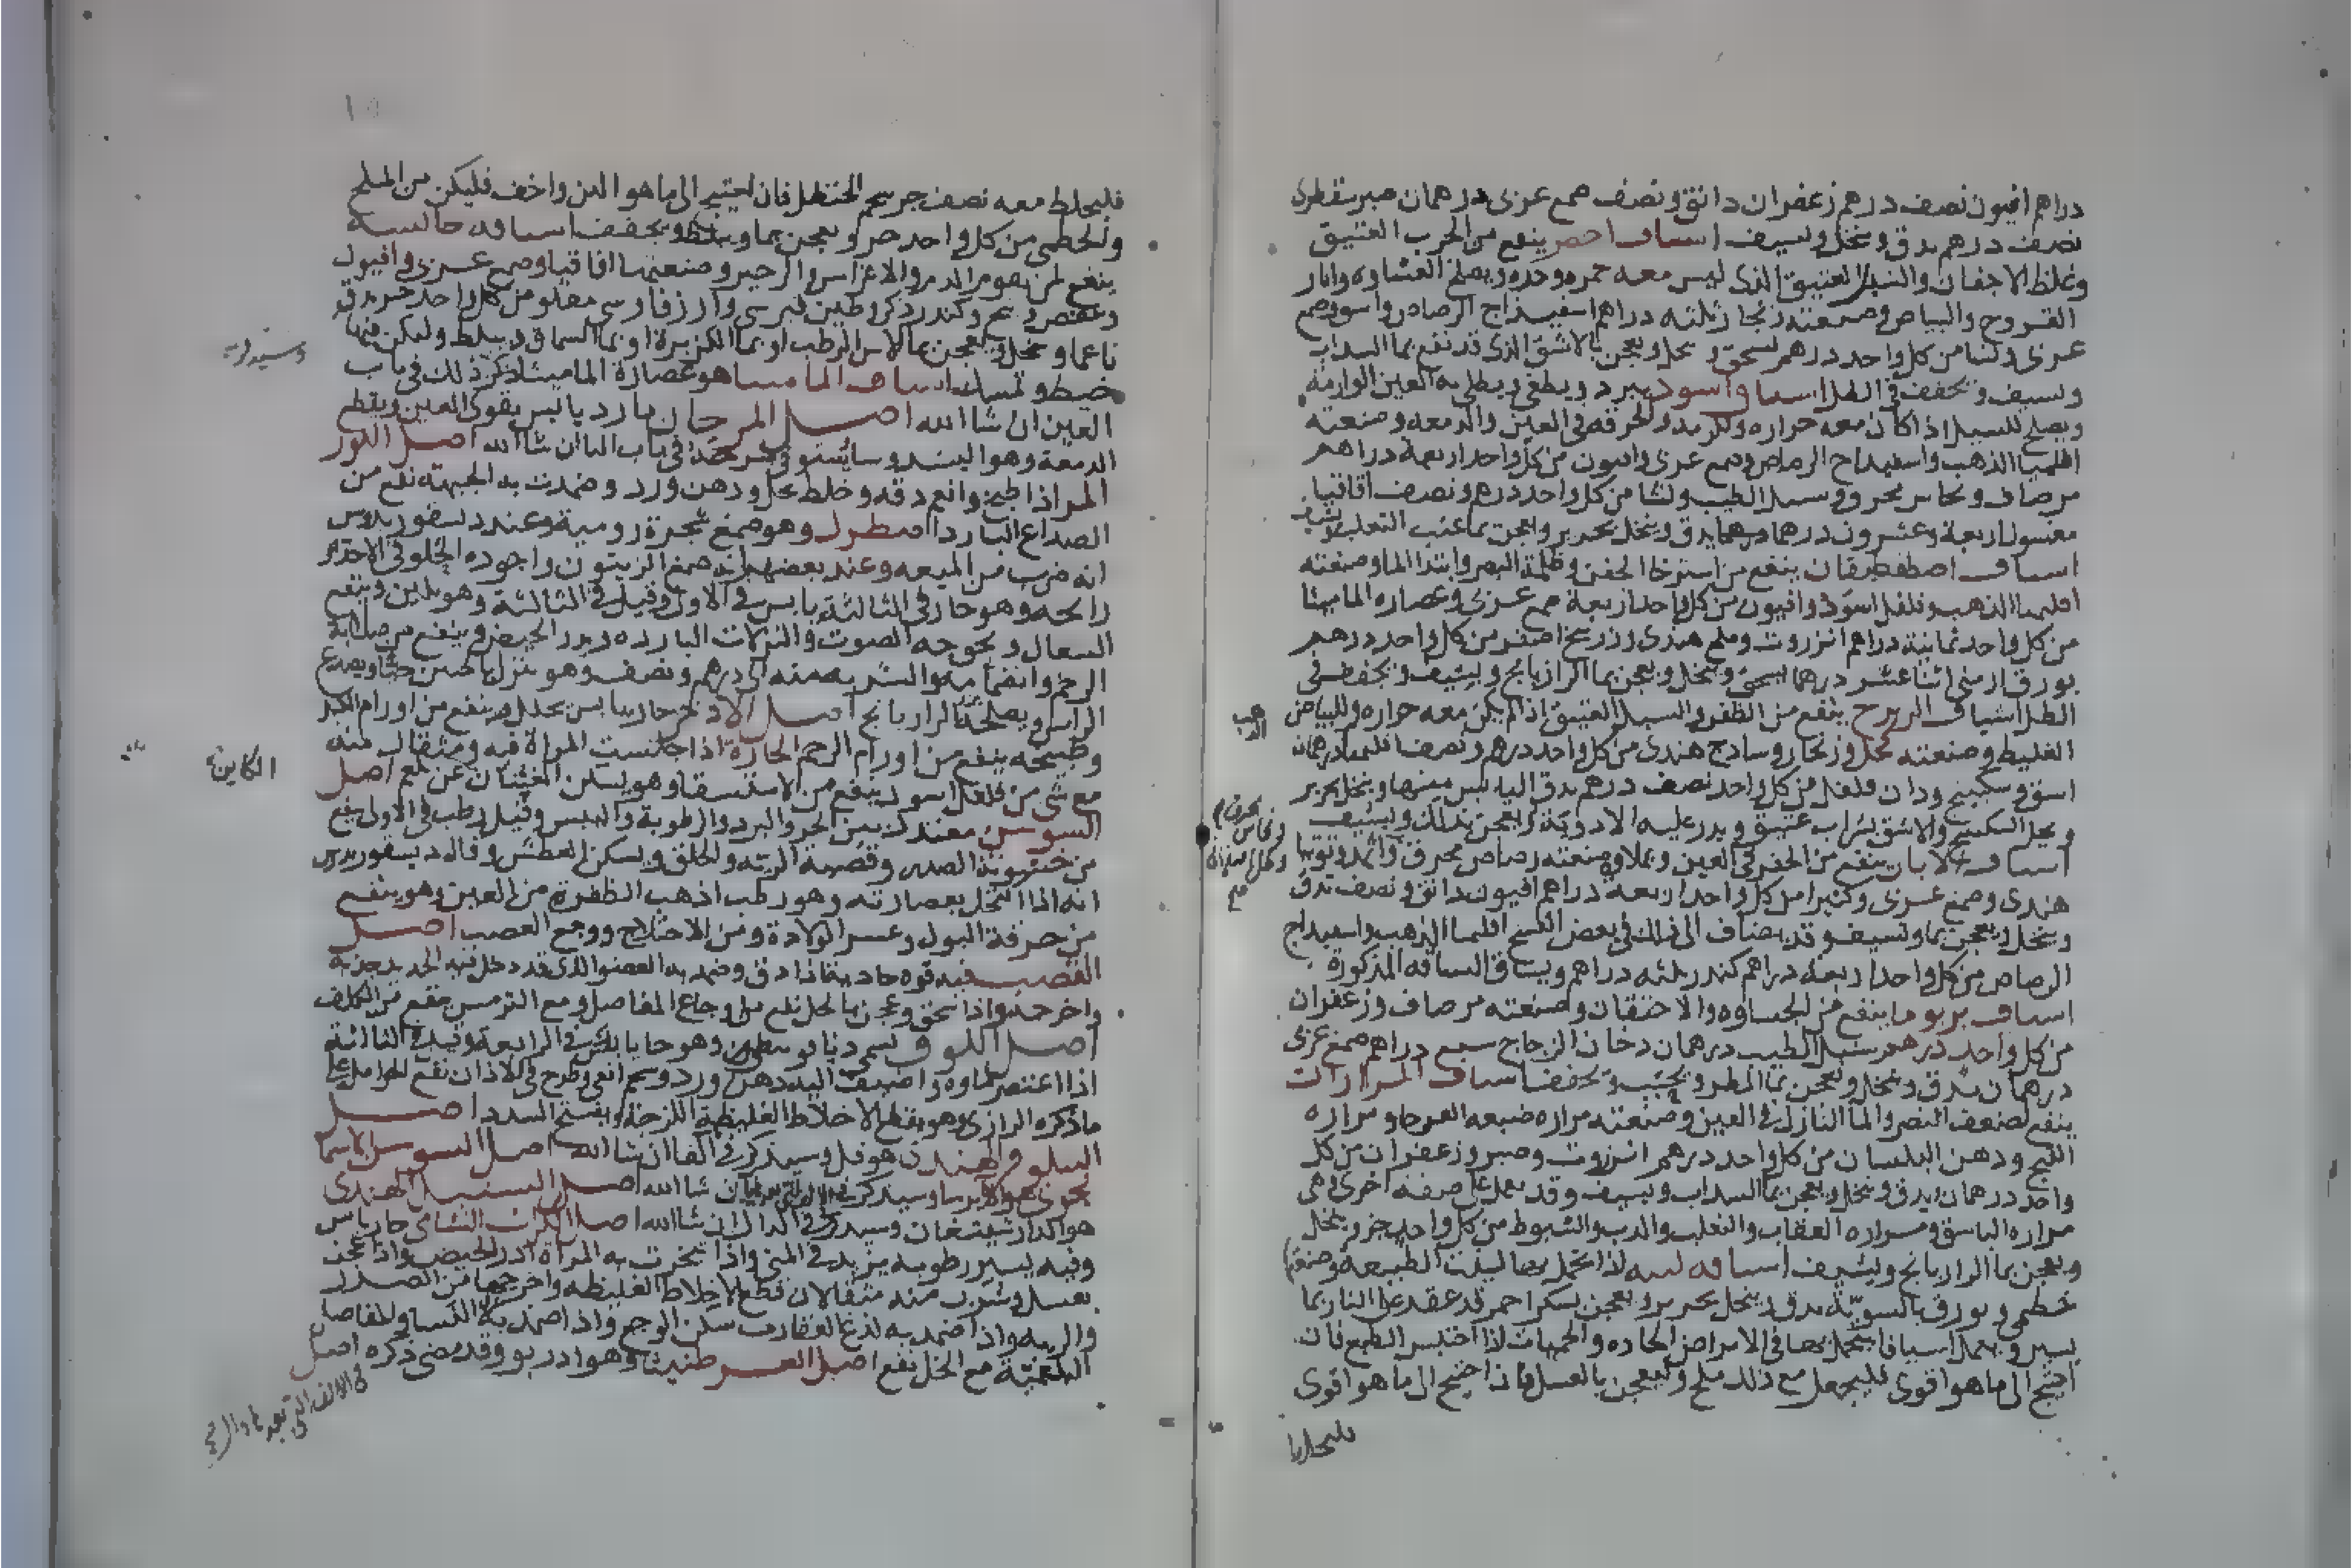 دراهم افيون نصف درهم زعفران دانق ونصف صمغ عربى درهمان صبر سقطرى
نصف درهم يدق وينخل ويشيف اشياف احمر ينفع من الجرب العتيق
وغلظ الاجفان والسبل العتيق الذى ليس معه حمره وحده ويصلح الغشاوه واثار
القروح والبياض وصنعته زنجار ثلثه دراهم اسفيذاج الرصاص واشق وصمغ
عربى ونشا من كل واحد درهم يسحق وينخل ويعجن بالاشق الذى قد نقع بما السداب
ويشيف ويجفف فى الظل اشياف اسود يبرد ويطفى ويطلى به العين الوارمة
ويصلح للسبل اذا كان معه حراره وللرمد والحرقه فى العين والدمعه وصنعته
اقليميا الذهب واسفيداج الرصاص وصمغ عربى وافيون من كل واحد اربعة دراهم
مرصاف ونحاس محرق وسنبل الطيب ونشا من كل واحد درهم ونصف اقاقيا
مغسول اربعة وعشرون درهما يدق وينخل بحرير ويعجن بما عنب الثعلب ويشيف
اشياف اصطفطيقان ينفع من استرخا الجفن وظلمة البصر وابتدا الما وصنعته
اقليميا الذهب وفلفل اسود وافيون من كل واحد اربعة صمغ عربى وعصاره الماميثا
من كل واحد ثمانية دراهم انزروت وملح هندى وزرنيخ اصفر من كل واحد درهم
بورق ارمنى اثنا عشر درهما يسحق وينخل ويعجن بما الرازيانج ويشيف ويجفف فى
الظل اشياف الزرنيخ ينفع من الظفره والسبل العتيق اذا لم يكن معه حراره وللبياض
الغليظ وصنعته وزنجار وساذج هندى من كل واحد درهم ونصف اقليميا درهمان
اشق وسكبينج وفلفل من كل واحد نصف درهم يدق اليابس منها وينخل بحرير
ويحل السكبينج والاشق بشراب عتيق ويذر عليه الادوية ويعجن بذلك ويشيف
اشياف الابار ينفع من الحفر فى العين وصنعته رصاص محرق واثمد وتوتيا
هندى وصمغ عربى وكثيرا من كل واحد اربعة دراهم افيون دانق ونصف يدق
وينخل ويعجن بما ويشيف وقد يضاف الى ذلك فى بعض النسخ اقليميا الذهب واسفيداج
الرصاص من كل واحد اربعة دراهم كندر ثلثه دراهم ويساق السياقه المذكورة
اشياف ينفع من الغشاوه والاختقان وصنعته مرصاف وزعفران
من كل واحد درهم سنبل الطيب درهمان دخان الزجاج سبع دراهم صمغ عربى
درهمان يدق وينخل ويعجن بما المطر ويجفف اشياف المرارات
ينفع لضعف البصر والما النازل فى العين وصنعته مراره ضبعه العرجا ومراره
القبج ودهن البلسان من كل واحد درهم انزروت وصبر وزعفران من كل
واحد درهمان يدق وينخل ويعجن بما السداب ويشيف وقد يعمل على صفه اخرى وهى
مراره الباشق ومراره العقاب والثعلب والدب والشبوط من كل واحد جزو ينخل
ويعجن بما الرازيانج ويشيف اشيافه لينه اذا تحمل بها لينت الطبيعة وصنعتها
خطمى وبورق بالسويّة يدق وينخل بحرير ويعجن بسكر احمر قد عقد على النار بما
يسير ويعمل اشيافا يتحمل بها فى الامراض الحاده والحميات اذا احتبس الطبع فان
احتيج الى ما هو اقوى فليجعل مع ذلك ملح وليعجن بالعسل فان احتيج الى ما هو اقوى
فليخلط
فليخلط معه نصف جز شحم الحنظل فان احتيج الى ما هو الين واخف فليكن من الملح
والخطمى من كل واحد جز ويعجن بما ويجفف اشيافه حابسة
ينفع لمن يقوم الدم والاغراس والزحير وصنعتها اقاقيا وصمغ عربى وافيون
وعفص وكندر ذكر وطين قبرسى وارز فارسى مقلو من كل واحد جز يدق
ناعما وينخل ويعجن بما الاس الرطب او بما الكزبرة او بما السماق ويبلط وليكن فيها
خيط وتمسك اشياف الماميثا هو عصارة الماميثا وسيذكر ذلك فى باب
العين ان شا الله اصل المرجان بارد يابس يقوى العين ويقطع
الدمعة وهو البسد وسايشو فى شرحه فى باب البا ان شا الله اصل اللوز
المر اذا طبخ وانعم دقه وخلط بخل ودهن ورد وضمدت به الجبهة نفع من
الصداع البارد اصطرك وهو صمغ شجرة رومية وعند ديسقوريدوس
انه ضرب من الميعه وعند بعضهم انه صمغ الزيتون واجوده
رايحه وهو حار فى الثالثة يابس فى الاولى وقيل فى الثالثة وهو يلين وينفع
السعال وبحوحه الصوت والنزلات البارده ويدر الحيض وينفع من صلابة
الرحم وانضمامه والشربه منه الى درهم ونصف وهو ويصدع
الراس ويصلحه الرازيانج اصل الاذخر حار يابس يحلل وينفع من اورام الكبد
وطبيخه ينفع من اورام الرحم الحارة اذا جلست المراة فيه ومثقال منه
مع شى من فلفل اسود ينفع من الاستسقا وهو يسكن الغثيان عن بلغم اصل
السوسن معتدل بين الحر والبرد والرطوبة واليبس وقيل رطب فى الاولى ينفع
من خشونة الصدر وقصبة الريه والحلق ويسكن العطش وقال ديسقوريدس
انه اذا اكتحل بعصارته وهو رطب اذهب الظفرة من العين وهو ينفع
من حرقة البول وعسر الولادة ومن الاختلاج ووجع العصب اصل
القصب فيه قوه جاذبة فاذا دق وضمد به العضو الذى قد دخل فيه الحديد جذبه
واخرجه واذا سحق وعجن بالخل نفع من اوجاع المفاصل ومع الترمس ينفع من الكلف
اصل اللوف وهو حار يابس فى الرابعة وقيل فى الثالثة
اذا اعتصر ماوه واضيف اليه دهن ورد وطرح فى الاذان نفع
ما ذكره الرازى وهو يقطع الاخلاط الغليظة اللزجة ويفتح السدد اصل
النيلوفر الهندى هو فل وسيذكر فى الفا ان شا الله اصل السوسن الاسما
نجونى هو الايرسا وسيذكر فى ان شا الله اصل السنبل الهندى
هو الدارشيشعان وسيذكر فى الدال ان شا الله اصل الكراث الشامى حار يابس
وفيه يسير رطوبه يزيد فى المنى واذا تبخرت به المراة ادر الحيض واذا عجن
بعسل وشرب منه مثقالان قطع الاخلاط الغليظه واخرجها من الصدر
والريه واذا ضمد به لذع العقارب سكن الوجع واذا ضمد به النسا والمفاصل
البلغميّة مع الخل نفع اصل العرطنيثا وهو اذربو وقد مضى ذكره اصل
فى الالف التى بعدها دال
الكاين